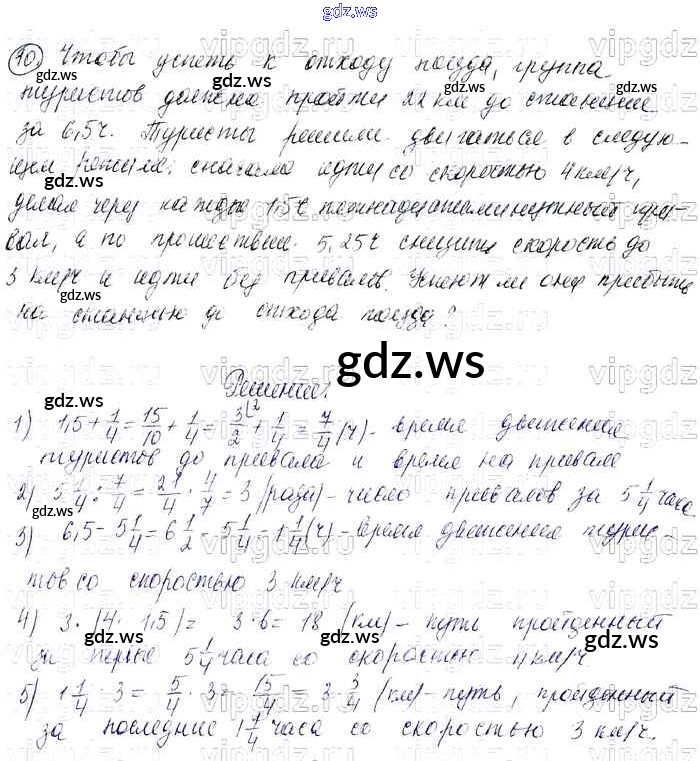 gdz.ws
10) Чтобы успеть к отходу поезда, группа
туристов должна пройти 22 км до станции
за 6,5ч. Туристы решили двигаться в следую-
щем режиме: сначала идти со скоростью 4 км/ч,
делая через каждые 1,5ч пятнадцатиминутный при-
вал, а по прошествии 5,25ч снизить скорость до
3 км/ч и идти без привалов. Успеют ли они прибыть
на станцию до отхода поезда?
Решение:
1) 1,5 + 1/4 = 15/10 + 1/4 = 3/2 + 1/4 = 7/4 (ч) - время движения
туристов до привала и время на привале
2) 5 1/4 : 7/4 = 21/4 · 4/7 = 3 (раза) - число привалов за 5 1/4 часа
3) 6,5 - 5 1/4 = 6 1/2 - 5 1/4 = 1 1/4 (ч) - время движения турис-
тов со скоростью 3 км/ч
4) 3 · (4 · 1,5) = 3·6 = 18 (км) - путь пройденный
за первые 5 1/4 часа со скоростью 4 км/ч
5) 1 1/4 · 3 = 5/4 · 3 = 15/4 = 3 3/4 (км) - путь, пройденный
за последние 1 1/4 часа со скоростью 3 км/ч.